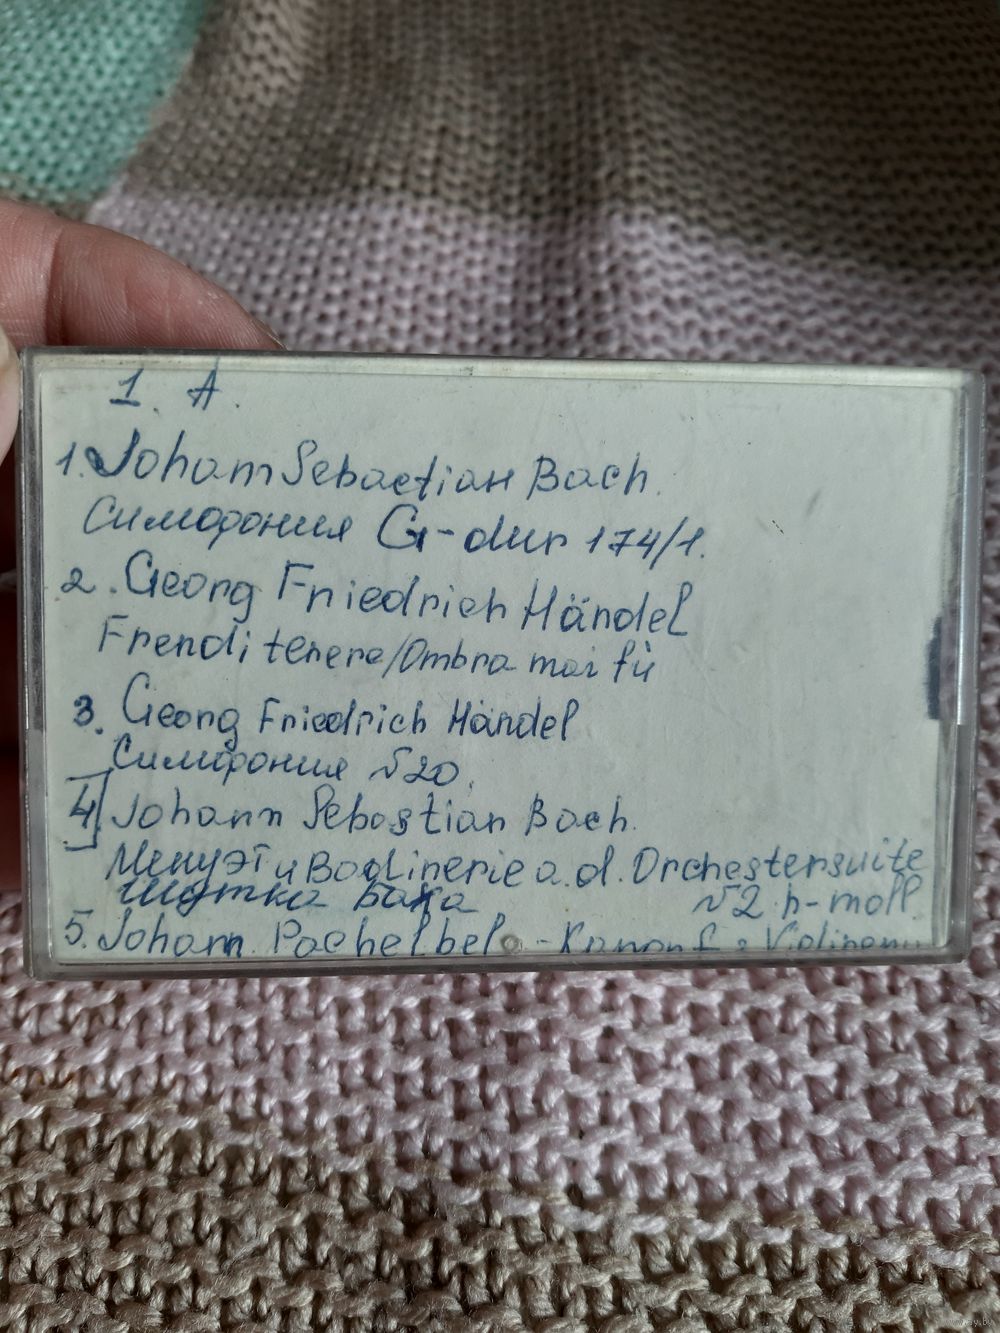 1. A.
1. Joham Sebaetian Bach.
Симфония G-dur 174/1.
2. Georg Friedrich Händel
Frendi tenere/Ombra mai fù
3. Georg Friedrich Händel
Симфония №20.
4 Johann Sebastian Bach.
Менуэт и Badinerie a. d. Orchestersuite
шутка Баха №2 h-moll
5. Joham Pachelbel - Kanon f. 3 Violinen